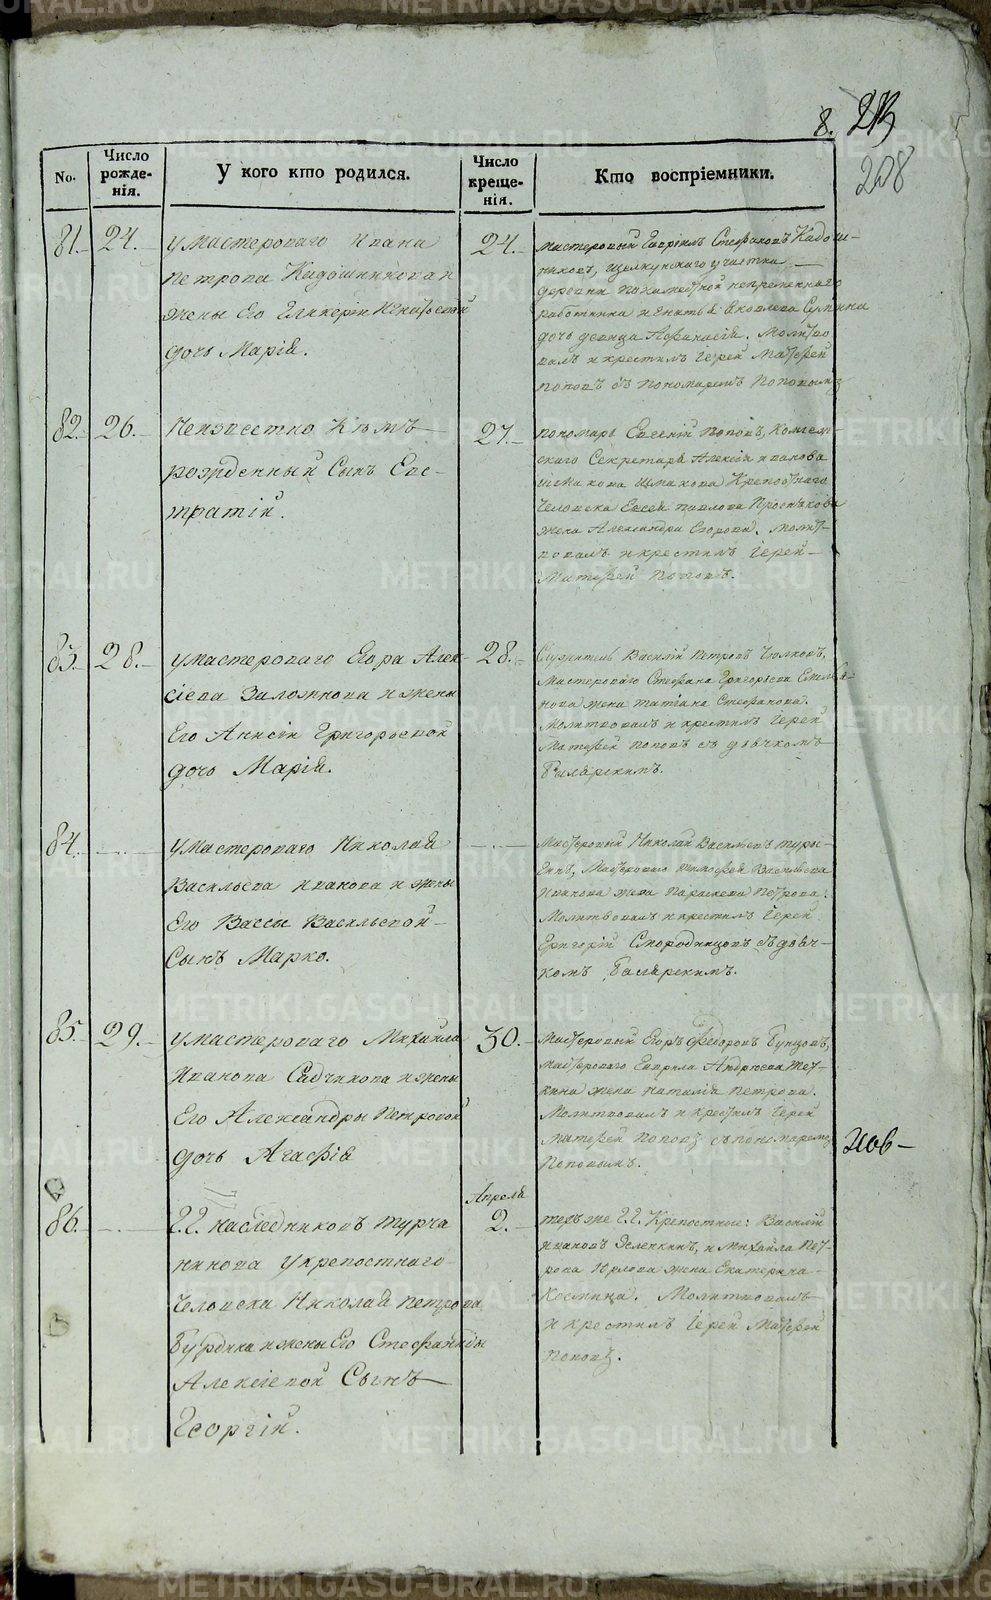 8. 213
208
No.
Число рожденія.
У кого кто родился.
Число крещенія.
Кто воспріемники.
81. 24.
умастероваго Ивана
Петрова Кадошникова и
жены Его Гликеріи Игнатьевой
дочь Марія.
24.
мастеровый Гавріилъ Стефановъ Кадош-
никовъ, Щелкунскаго участка
деревни непременнаго
работника Игнатья Яковлева
дочь девица Афанасія. Молитво
валъ и крестилъ Іерей Матфей
Поповъ съ Пономаремъ Поповымъ
82. 26.
Неизвестно Кѣмъ
рожденный Сынъ Евс-
тратій.
27.
пономарь Евгеній Поповъ, Коллеж-
скаго Секретаря Алексія Иванова
Крепостнаго
человека Евсея Павлова
жена Александра Егорова. Молит-
вовалъ и крестилъ Іерей
Матфей Поповъ.
83. 28.
умастероваго Егора Алек-
сіева Заложнова и жены
Его Анисіи Григорьевой
дочь Марія.
28.
Служитель Василій Петровъ
Мастероваго Стефана Григорьева
жена Татіана Стефанова.
Молитвовалъ и крестилъ Іерей
Матфей Поповъ съ дьячкомъ
84.
умастероваго Николая
Васильева Иванова и жены
Его Вассы Васильевой
Сынъ Марко.
Мастеровый Николай Васильевъ
Мастероваго Тимофея Васильева
Иванова жена Параскева Петрова.
Молитвовалъ и крестилъ Іерей
Григорій Смородинцовъ съ дьяч-
комъ
85. 29.
умастероваго Михаила
Иванова Садчикова и жены
Его Александры Петровой
дочь Агафія
30.
Мастеровый Егоръ Федоровъ Бунцовъ,
мастероваго Гаврила Андреева
жена Наталія Петрова.
Молитвовалъ и крестилъ Іерей
Матфей Поповъ съ пономаремъ
Поповымъ.
86.
Г.Г. наследниковъ Турча
нинова у крепостнаго
человека Николая Петрова
Бурдина и жены Его Стефаниды
Алексіевой Сынъ
Георгій.
Апреля
2.
техъ же Г.Г. Крепостные: Василій
Ивановъ и Михаила Пет-
рова жена Екатерина
Космина. Молитвовалъ
и крестилъ Іерей Матфей
Поповъ.
METRIKI.GASO-URAL.RU